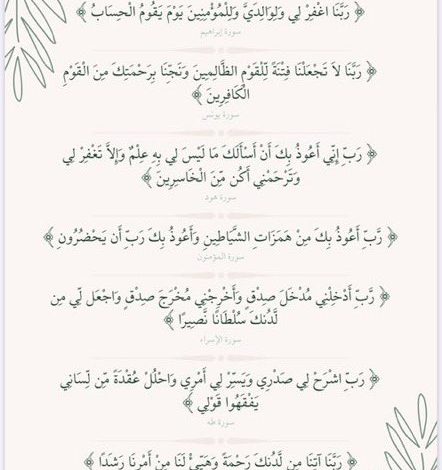 ﴿ رَبَّنَا اغْفِرْ لِي وَلِوَالِدَيَّ وَلِلْمُؤْمِنِينَ يَوْمَ يَقُومُ الْحِسَابُ ﴾
سورة إبراهيم
﴿ رَبَّنَا لاَ تَجْعَلْنَا فِتْنَةً لِّلْقَوْمِ الظَّالِمِينَ وَنَجِّنَا بِرَحْمَتِكَ مِنَ الْقَوْمِ
الْكَافِرِينَ ﴾
سورة يونس
﴿ رَبِّ إِنِّي أَعُوذُ بِكَ أَنْ أَسْأَلَكَ مَا لَيْسَ لِي بِهِ عِلْمٌ وَإِلاَّ تَغْفِرْ لِي
وَتَرْحَمْنِي أَكُن مِّنَ الْخَاسِرِينَ ﴾
سورة هود
﴿ رَّبِّ أَعُوذُ بِكَ مِنْ هَمَزَاتِ الشَّيَاطِينِ وَأَعُوذُ بِكَ رَبِّ أَن يَحْضُرُونِ ﴾
سورة المؤمنون
﴿ رَّبِّ أَدْخِلْنِي مُدْخَلَ صِدْقٍ وَأَخْرِجْنِي مُخْرَجَ صِدْقٍ وَاجْعَل لِّي مِن
لَّدُنكَ سُلْطَانًا نَّصِيرًا ﴾
سورة الإسراء
﴿ رَبِّ اشْرَحْ لِي صَدْرِي وَيَسِّرْ لِي أَمْرِي وَاحْلُلْ عُقْدَةً مِّن لِّسَانِي
يَفْقَهُوا قَوْلِي ﴾
سورة طه
﴿ رَبَّنَا آتِنَا مِن لَّدُنكَ رَحْمَةً وَهَيِّئْ لَنَا مِنْ أَمْرِنَا رَشَدًا ﴾